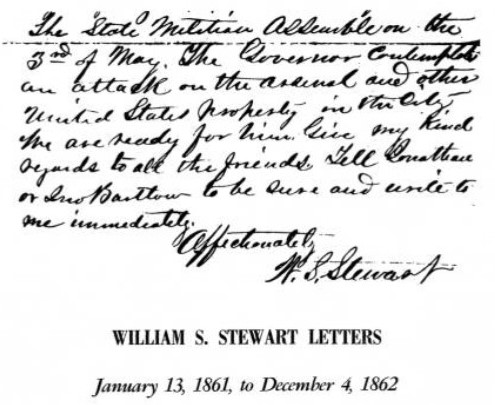 The State Militia Assemble on the
3rd of May. The Governor Contemplate
an attack on the arsenal and other
United States property in the City
We are ready for him. Give my Kind
regards to all the friends. Tell Jonathan
or Jno Bartlow to be sure and write to
me immediately.
Affectionately
W. S. Stewart
WILLIAM S. STEWART LETTERS
January 13, 1861, to December 4, 1862